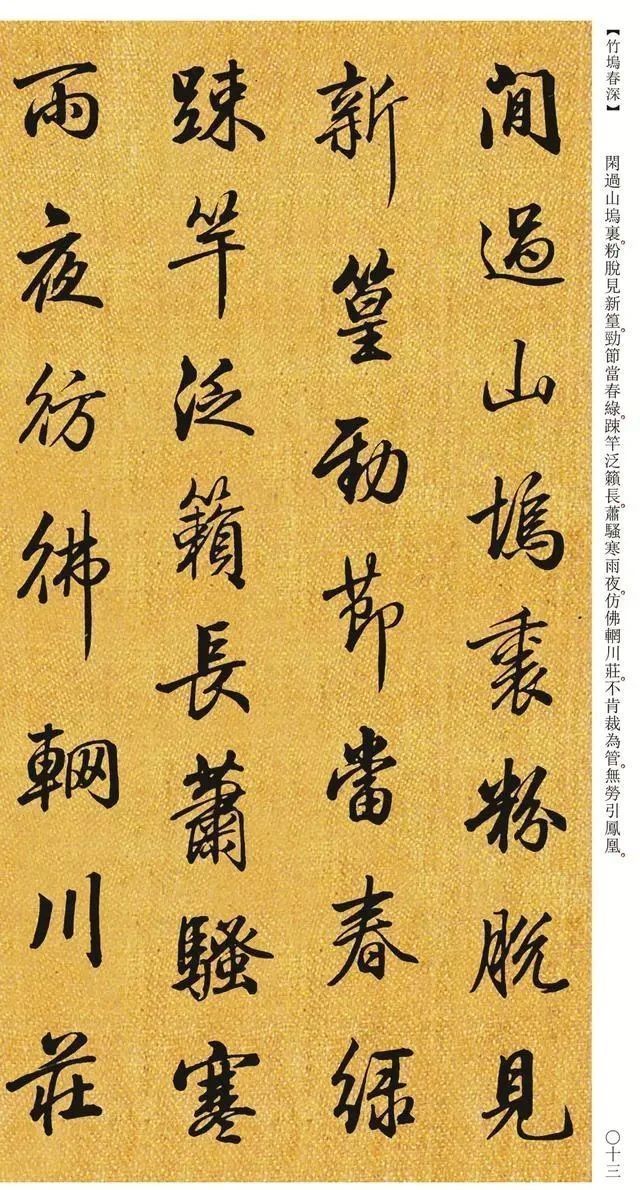 【竹塢春深】
閑過山塢裏。粉脫見新篁。勁節當春綠。踈竿泛籟長。蕭騷寒雨夜。仿佛輞川莊。不肯裁為管。無勞引鳳凰。
〇十三
閒過山塢裏粉脫見
新篁勁節當春綠
踈竿泛籟長蕭騷寒
雨夜彷彿輞川莊